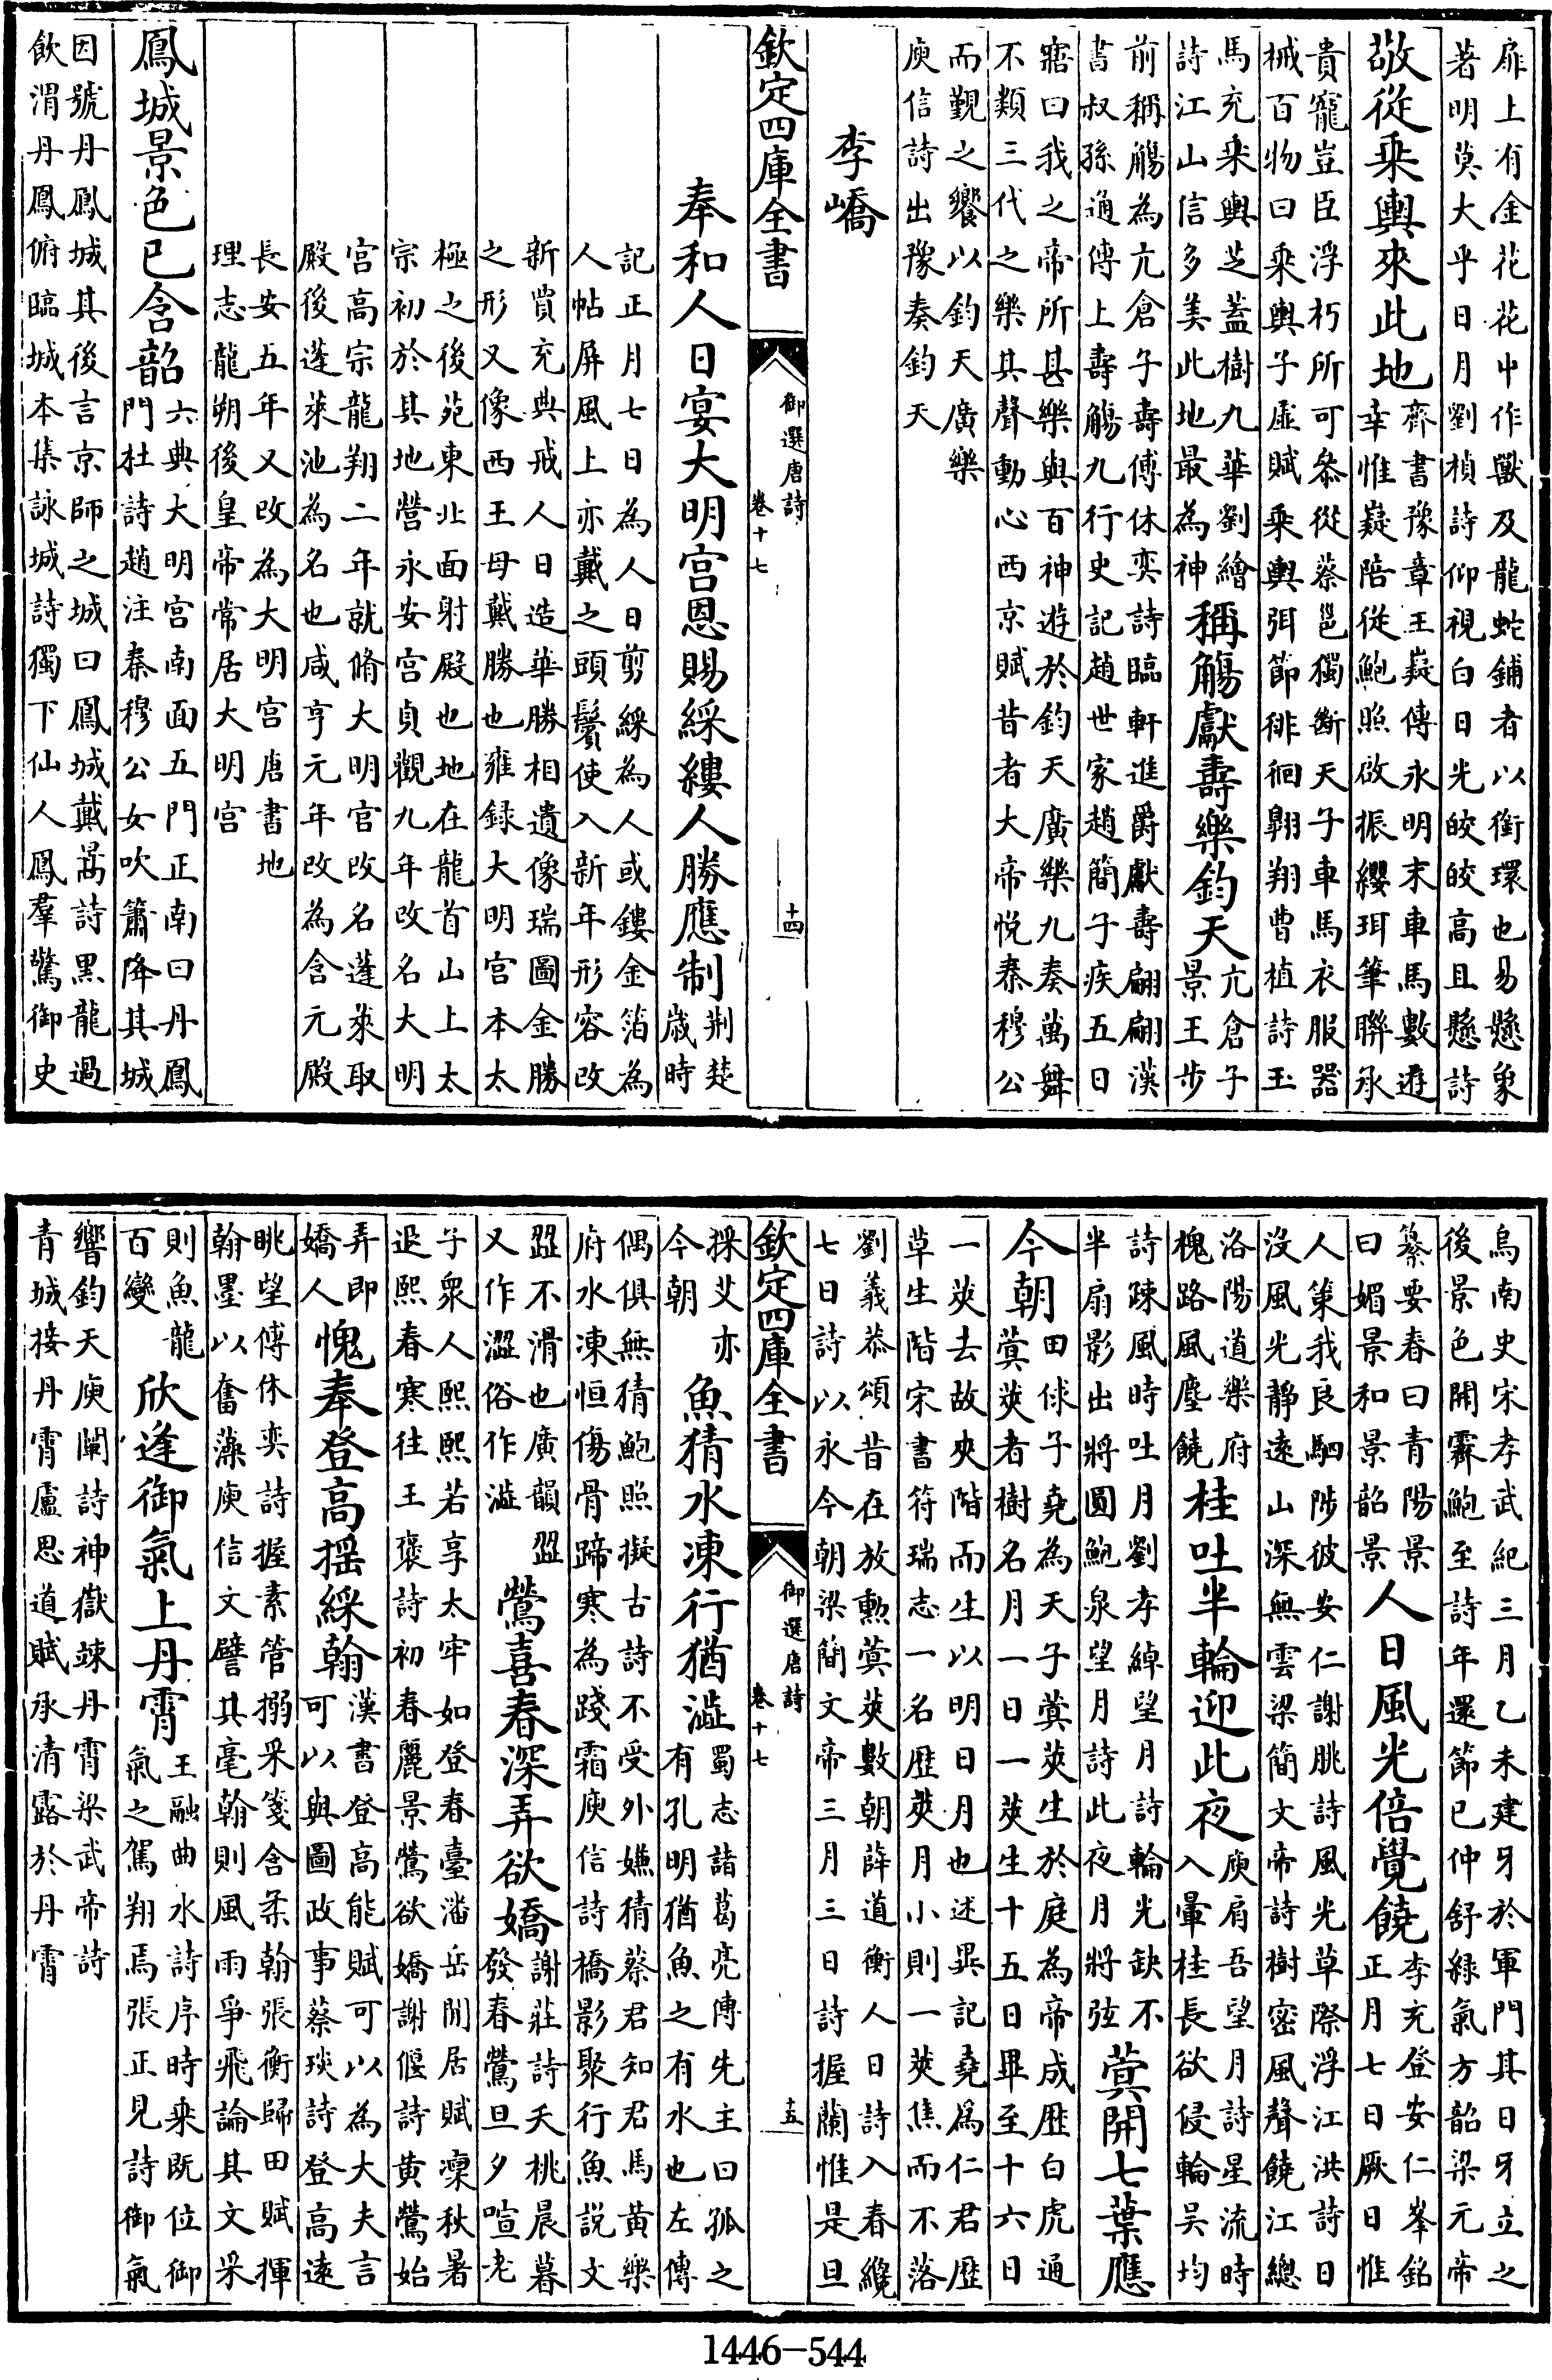 扉上有金花花中作獸及龍蛇鋪者以銜環也易懸象
著明莫大乎日月劉楨詩仰視白日光皎皎高且懸詩
敬從乘輿來此地
齊書豫章王嶷傳永明末車馬數遊
幸惟嶷陪從鮑照啟振纓珥筆聯承
貴寵豈臣浮朽所可叅從蔡邕獨斷天子車馬衣服器
械百物曰乘輿子虛賦乘輿弭節徘徊翺翔曹植詩玉
馬充乘輿芝蓋樹九華劉繪
詩江山信多美此地最為神
稱觴獻壽樂鈞天
亢倉子
景王步
前稱觴為亢倉子壽傅休奕詩臨軒進爵獻壽翩翩漢
書叔孫通傳上壽觴九行史記趙世家趙簡子疾五日
寤曰我之帝所甚樂與百神遊於鈞天廣樂九奏萬舞
不類三代之樂其聲動心西京賦昔者大帝悅秦穆公
而覲之饗以鈞天廣樂
庾信詩出豫奏鈞天
李嶠
欽定四庫全書
御選唐詩
卷十七
十四
奉和人日宴大明宮恩賜綵縷人勝應制
荆楚
歲時
記正月七日為人日剪綵為人或鏤金箔為
人帖屏風上亦戴之頭鬢使入新年形容改
新賈充典戒人日造華勝相遺像瑞圖金勝
之形又像西王母戴勝也雍録大明宮本太
極之後苑東北面射殿也地在龍首山上太
宗初於其地營永安宮貞觀九年改名大明
宮高宗龍翔二年就脩大明宮改名蓬萊取
殿後蓬萊池為名也咸亨元年改為含元殿
長安五年又改為大明宮唐書地
理志龍朔後皇帝常居大明宮
鳳城景色已含韶
六典大明宮南面五門正南曰丹鳳
門杜詩趙注秦穆公女吹簫降其城
因號丹鳳城其後言京師之城曰鳳城戴暠詩黑龍過
飲渭丹鳳俯臨城本集詠城詩獨下仙人鳳羣驚御史
烏南史宋孝武紀三月乙未建牙於軍門其日牙立之
後景色開霽鮑至詩年還節已仲舒綠氣方韶梁元帝
纂要春曰青陽景
曰媚景和景韶景
人日風光倍覺饒
李充登安仁峯銘
正月七日厥日惟
人策我良駟陟彼安仁謝朓詩風光草際浮江洪詩日
没風光靜遠山深無雲梁簡文帝詩樹密風聲饒江總
洛陽道樂府
槐路風塵饒
桂吐半輪迎此夜
庾肩吾望月詩星流時
入暈桂長欲侵輪吴均
詩踈風時吐月劉孝綽望月詩輪光缺不
半扇影出將圓鮑泉望月詩此夜月將弦
蓂開七葉應
今朝
田俅子堯為天子蓂莢生於庭為帝成歷白虎通
蓂莢者樹名月一日一莢生十五日畢至十六日
一莢去故夾階而生以明日月也述異記堯爲仁君歷
草生階宋書符瑞志一名歷莢月小則一莢焦而不落
劉義恭頌昔在放勲蓂莢數朝薛道衡人日詩入春纔
七日詩以永今朝梁簡文帝三月三日詩握蘭惟是旦
欽定四庫全書
御選唐詩
卷十七
十五
採艾亦
今朝
魚猜水凍行猶澁
蜀志諸葛亮傳先主曰孤之
有孔明猶魚之有水也左傳
偶俱無猜鮑照擬古詩不受外嫌猜蔡君知君馬黃樂
府水凍恒傷骨蹄寒為踐霜庾信詩橋影聚行魚説文
歰不滑也廣韻歰
又作澀俗作澁
鶯喜春深弄欲嬌
謝莊詩夭桃晨暮
發春鶯旦夕喧老
子衆人熙熙若享太牢如登春臺潘岳閒居賦凜秋暑
退熙春寒往王褒詩初春麗景鶯欲嬌謝偃詩黄鶯始
弄即
嬌人
愧奉登高摇綵翰
漢書登高能賦可以為大夫言
可以與圖政事蔡琰詩登高遠
眺望傅休奕詩握素管搦采箋含柔翰張衡歸田賦揮
翰墨以奮藻庾信文譬其毫翰則風雨爭飛論其文采
則魚龍
百變
欣逢御氣上丹霄
王融曲水詩序時乘既位御
氣之駕翔焉張正見詩御氣
響鈞天庾闡詩神嶽竦丹霄梁武帝詩
青城接丹霄盧思道賦承清露於丹霄
1446-544